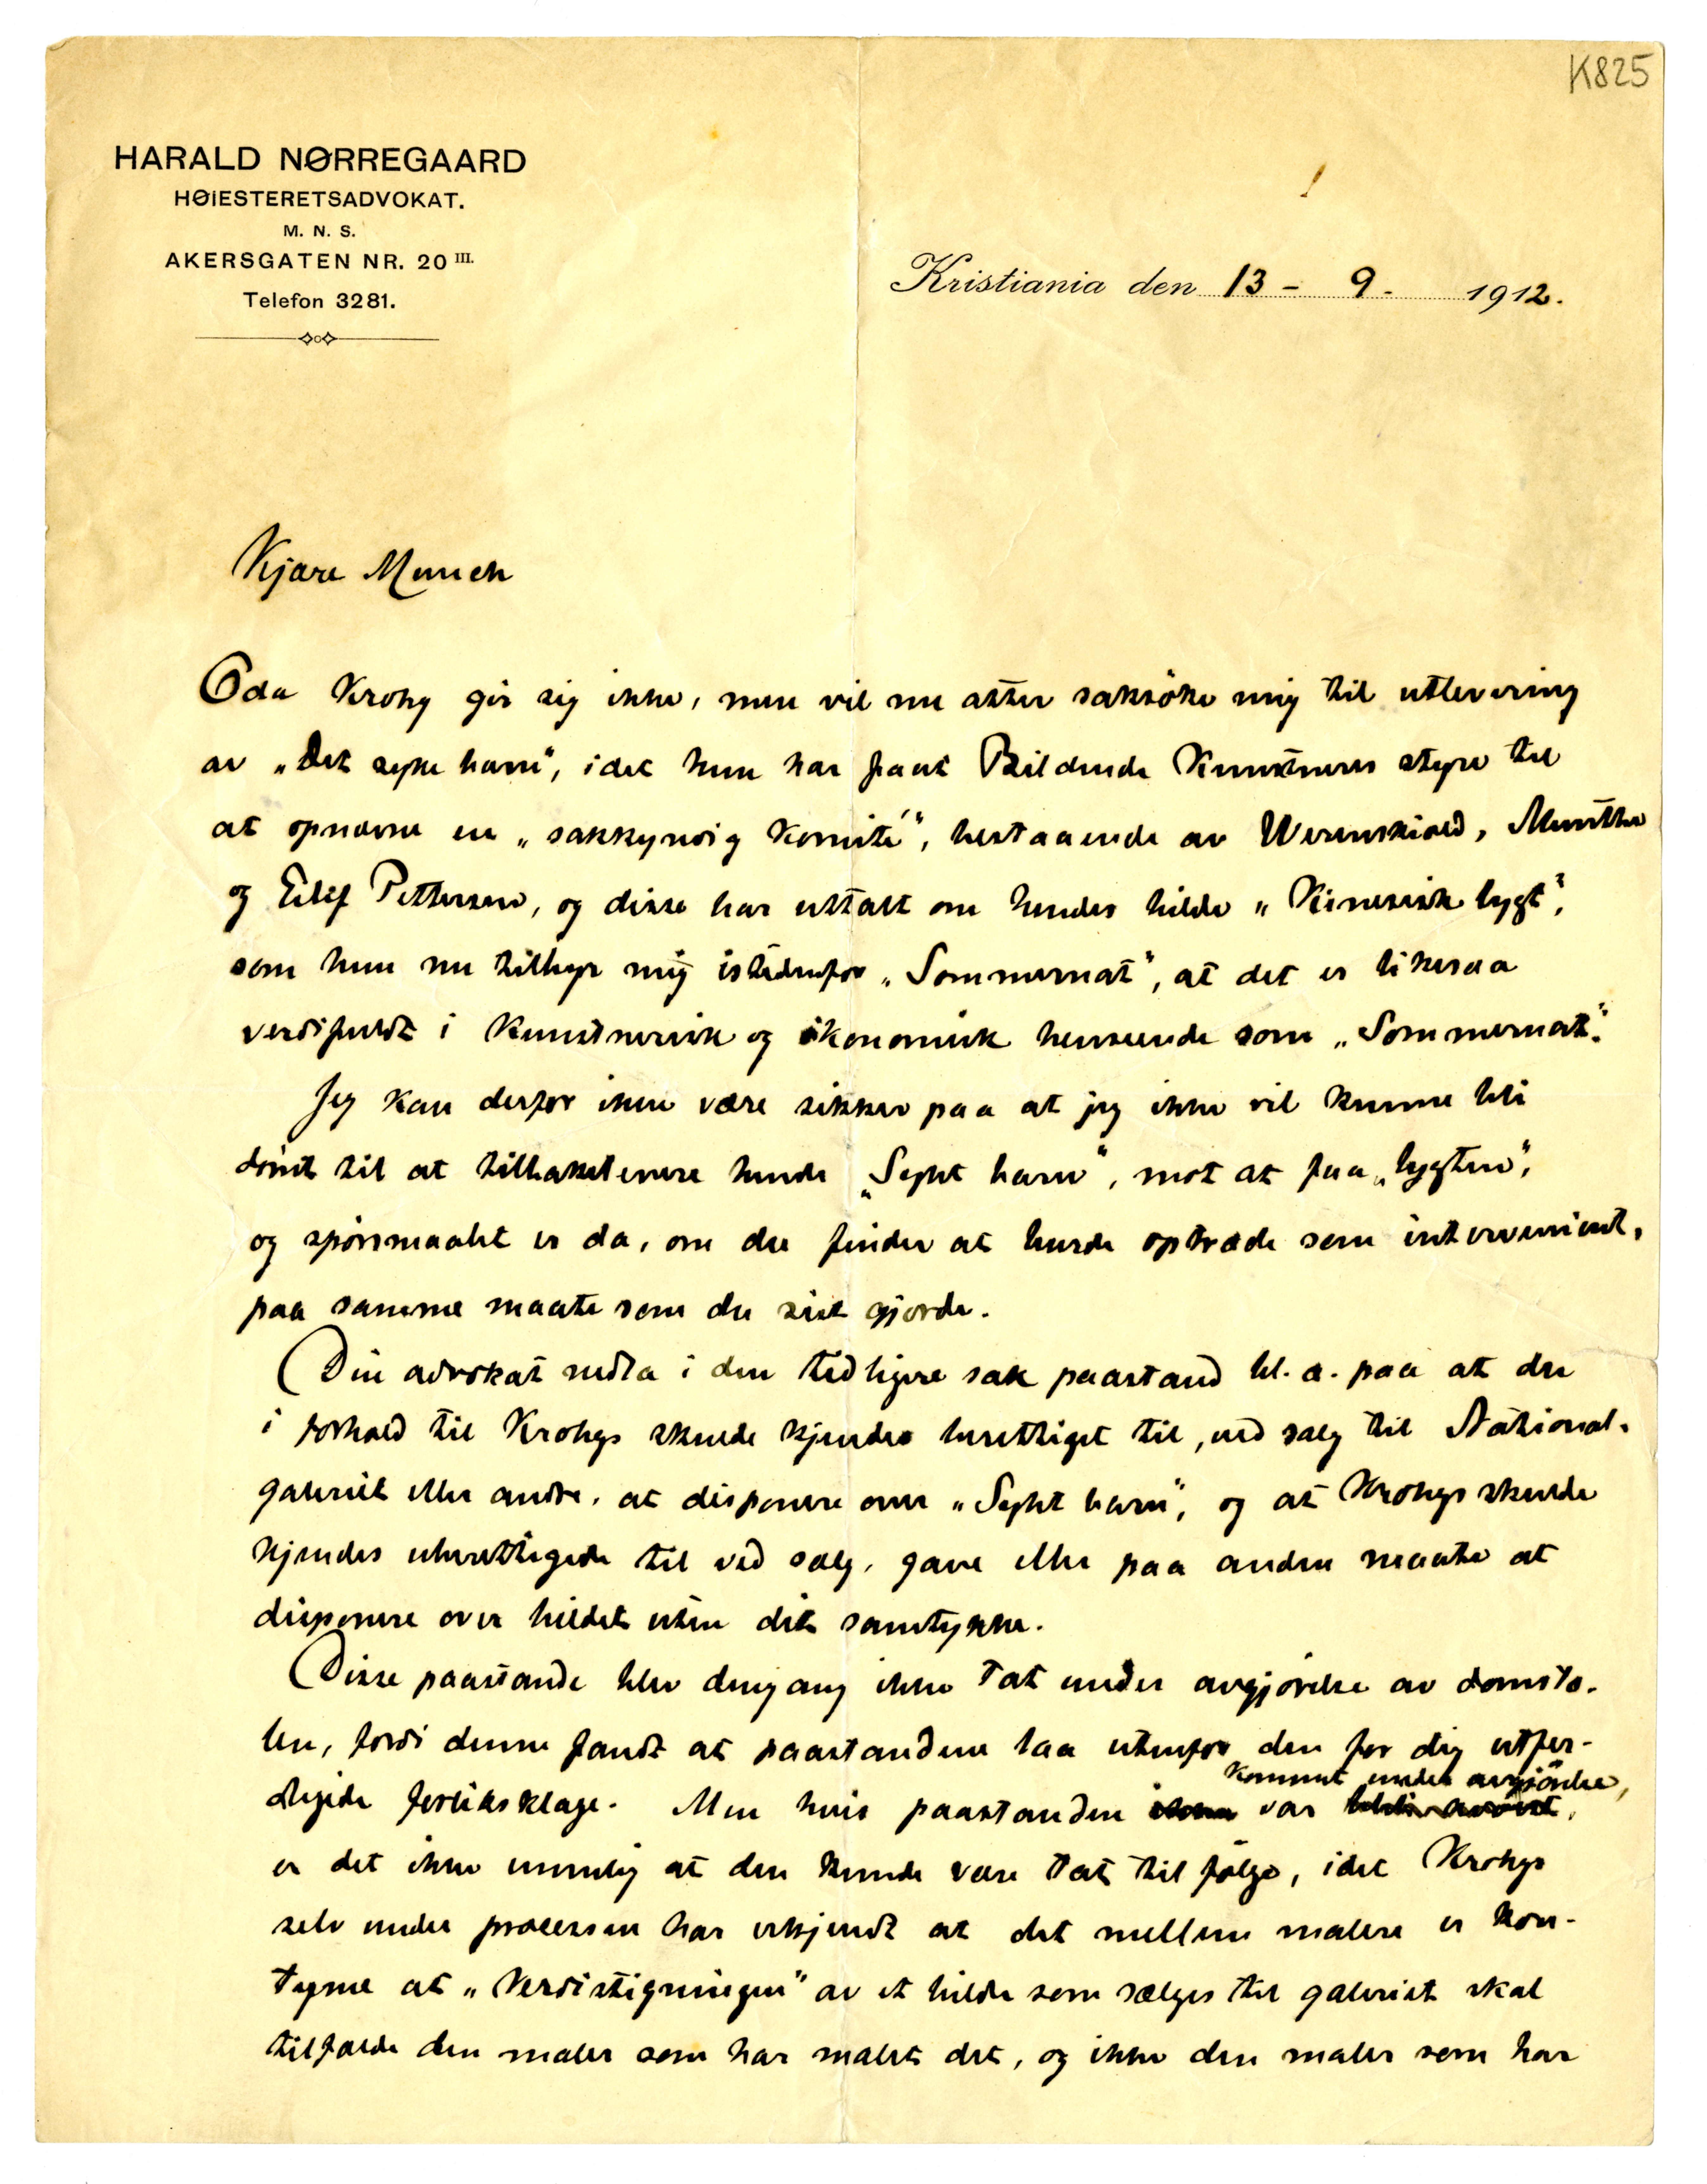 K825
HARALD NØRREGAARD
HØIESTERETSADVOKAT.
M. N. S.
AKERSGATEN NR. 20 III.
Telefon 3281.
Kristiania den 13 - 9 - 1912.
Kjære Munch
Oda Krohg gir sig ikke, men vil nu atter saksöke mig til utlevering
av „Det syke barn", idet hun har faat Bildende Kunstneres styre til
at opnævne en „sakkyndig komité", bestaaende av Werenskiold, Munthe
og Eilif Pettersen, og disse har uttalt om hendes bilde „Kinesisk lygt",
som hun nu tilbyr mig istedenfor „Sommernat", at det er likesaa
verdifuldt i kunstnerisk og ökonomisk henseende som „Sommernat".
Jeg kan derfor ikke være sikker paa at jeg ikke vil kunne bli
dömt til at tilbakelevere hende „Sykt barn", mot at faa „lygten",
og spörsmaalet er da, om du finder at burde optræde som intervenient,
paa samme maate som du sist gjorde.
Din advokat nedla i den tidligere sak paastand bl. a. paa at du
i forhold til Krohgs skulde kjendes berettiget til, ved salg til National-
galeriet eller andre, at disponere over „Sykt barn", og at Krohgs skulde
kjendes uberettigede til ved salg, gave eller paa anden maate at
disponere over bildet uten dit samtykke.
Disse paastande blev dengang ikke tat under avgjörelse av domsto-
len, fordi denne fandt at paastandene laa utenfor den for dig utfer-
digede forliksklage. Men hvis paastanden var kommet under avgjörelse,
er det ikke umulig at den kunde være tat til fölge, idet Krohgs
selv under processen har erkjendt at det mellem malere er kou-
tyme at „Verdistigningen" av et bilde som sælges til galeriet skal
tilfalde den maler som har malet det, og ikke den maler som har